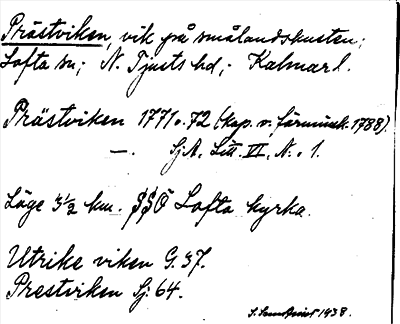 Prästviken, vik på smålandskusten;
Lofta sn; N. Tjusts hd; Kalmar l.
Prästviken 1771 o. 72 (kop. v. förminsk. 1788).
—. Sj A, Litt. VI, N:o 1.
Läge 3 1/2 km. SSÖ Lofta kyrka.
Utrike viken G. 37.
Prestviken Sj. 64.
1938.